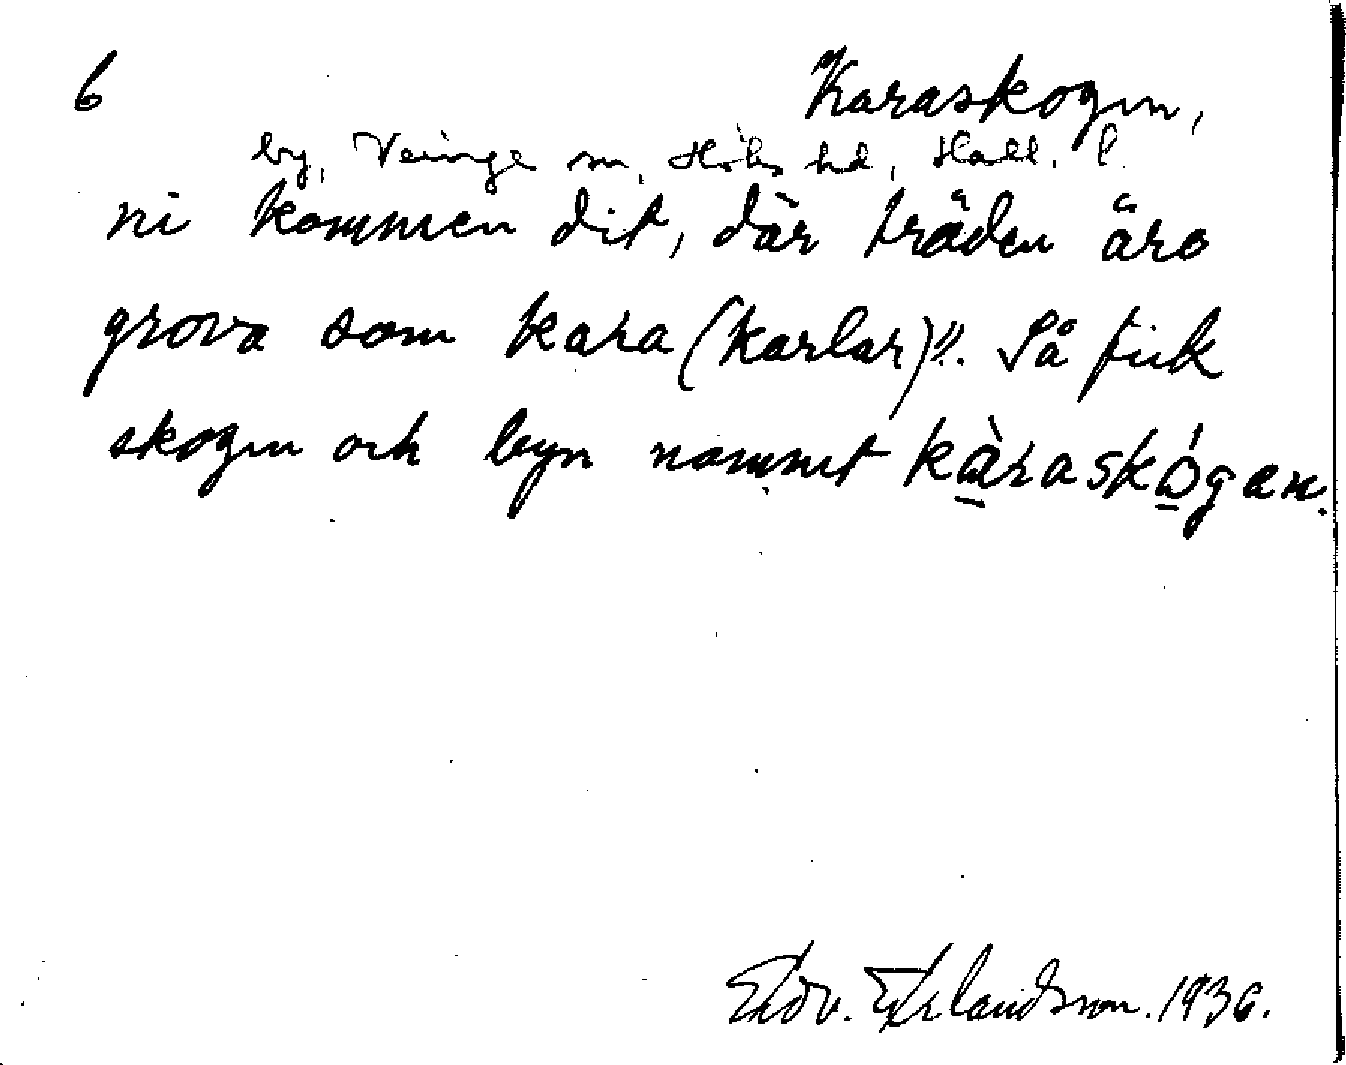 6 Karaskogen,
by, Veinge sn, Höks hd, Hall. l.
ni kommen dit, där träden äro
grova som kara (karlar)". Så fick
skogen och byn namnet kàraskógen.
Edv. Erlandsson. 1936.